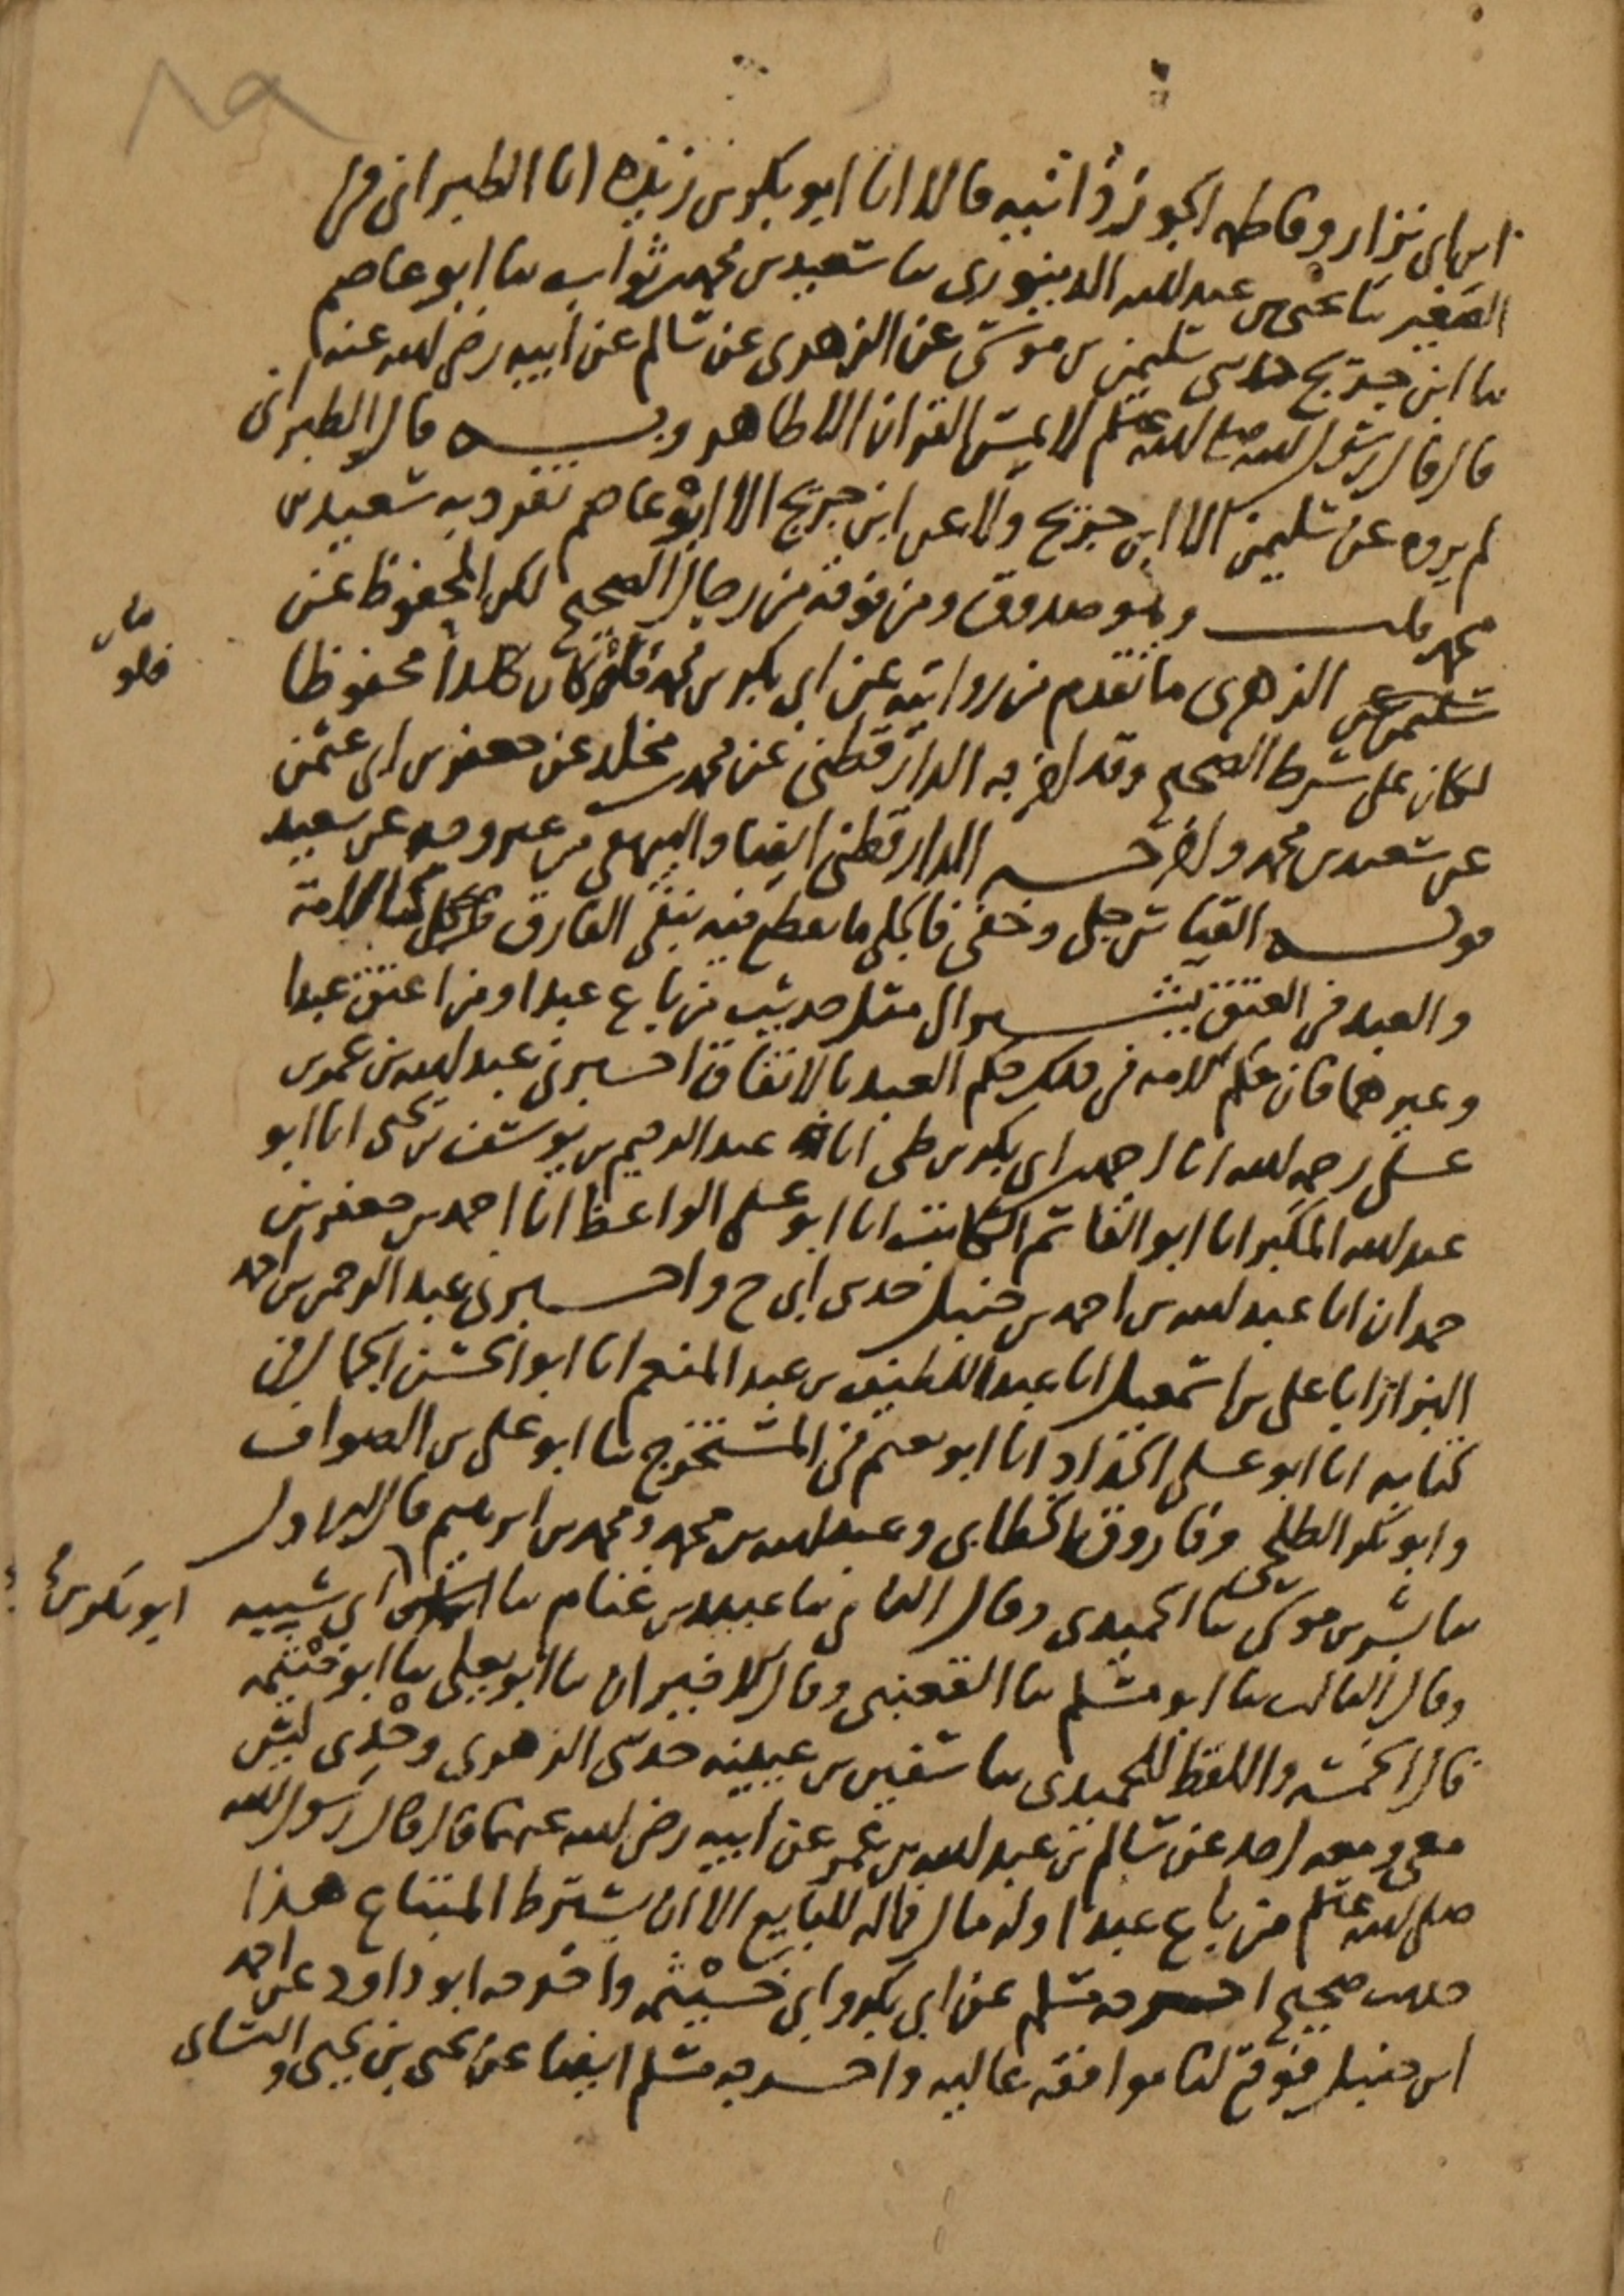 ٨٩
ابن ابي نزار وفاطمة الجوزذانية قالا انا ابو بكر بن ريذة انا الطبراني في
الصغير ثنا يحيى بن عبد الله الدينوري ثنا سعيد بن محمد بن ثواب ثنا ابو عاصم
ثنا ابن جريج حدثني سليمن بن موسى عن الزهري عن سالم عن ابيه رضي الله عنه
قال قال رسول الله صلى الله عليه وسلم لا يمس القران الا طاهر وبه قال الطبراني
لم يروه عن سليمن الا ابن جريج ولا عن ابن جريج الا ابو عاصم تفرد به سعيد بن
محمد قلت وهو صدوق ومن فوقه من رجال الصحيح لكن المحفوظ عن
سليمن عن الزهري ما تقدم من روايته عن ابي بكر بن محمد فلو كان هذا محفوظا
فلو
لكان على شرط الصحيح وقد اخرجه الدارقطني عن محمد بن مخلد عن جعفر بن ابي عثمن
عن سعيد بن محمد واخرجه الدارقطني ايضا والبيهقي من غير وجه عن سعيد
قوله القياس جلي وخفي فالجلي ما يقطع فيه بنفي الفارق كالامة
والعبد في العتق يشير الى مثل حديث من باع عبدا ومن اعتق عبدا
وغيرهما فان حكم الامة في ذلك حكم العبد بالاتفاق اخبرني عبد الله بن عمر بن
علي رحمه الله انا احمد بن ابي بكر بن طي انا عبد الرحيم بن يوسف بن يحيى انا ابو
عبد الله المكبر انا ابو القاسم الكاتب انا ابو علي الواعظ انا احمد بن جعفر بن
حمدان انا عبد الله بن احمد بن حنبل حدثني ابي ح واخبرني عبد الرحمن بن احمد
البزاز انا علي بن اسمعيل انا عبد اللطيف بن عبد المنعم انا ابو الحسن الجمال في
كتابه انا ابو علي الحداد انا ابو نعيم في المستخرج ثنا ابو علي بن الصواف
وابو بكر الطلحي وفاروق الخطابي وعبد الله بن محمد ومحمد بن ابرهيم قال الاول
ثنا بشر بن موسى ثنا الحميدي وقال الثاني ثنا عبيد بن غنام ثنا ابن ابي شيبة
ابو بكر بن
وقال الثالث ثنا ابو مسلم ثنا القعنبي وقال الاخيران ثنا ابو يعلى ثنا ابو خيثمة
قال الخمسة واللفظ للحميدي ثنا سفين بن عيينة حدثني الزهري وحدي ليس
معي ومعه احد عن سالم بن عبد الله بن عمر عن ابيه رضي الله عنهما قال قال رسول الله
صلى الله عليه وسلم من باع عبدا وله مال فماله للبايع الا ان يشترط المبتاع هذا
حديث صحيح اخرجه مسلم عن ابي بكر وابي خيثمة واخرجه ابو داود عن احمد
ابن حنبل فوقع لنا موافقة عالية واخرجه مسلم ايضا عن يحيى بن يحيى والنسائي